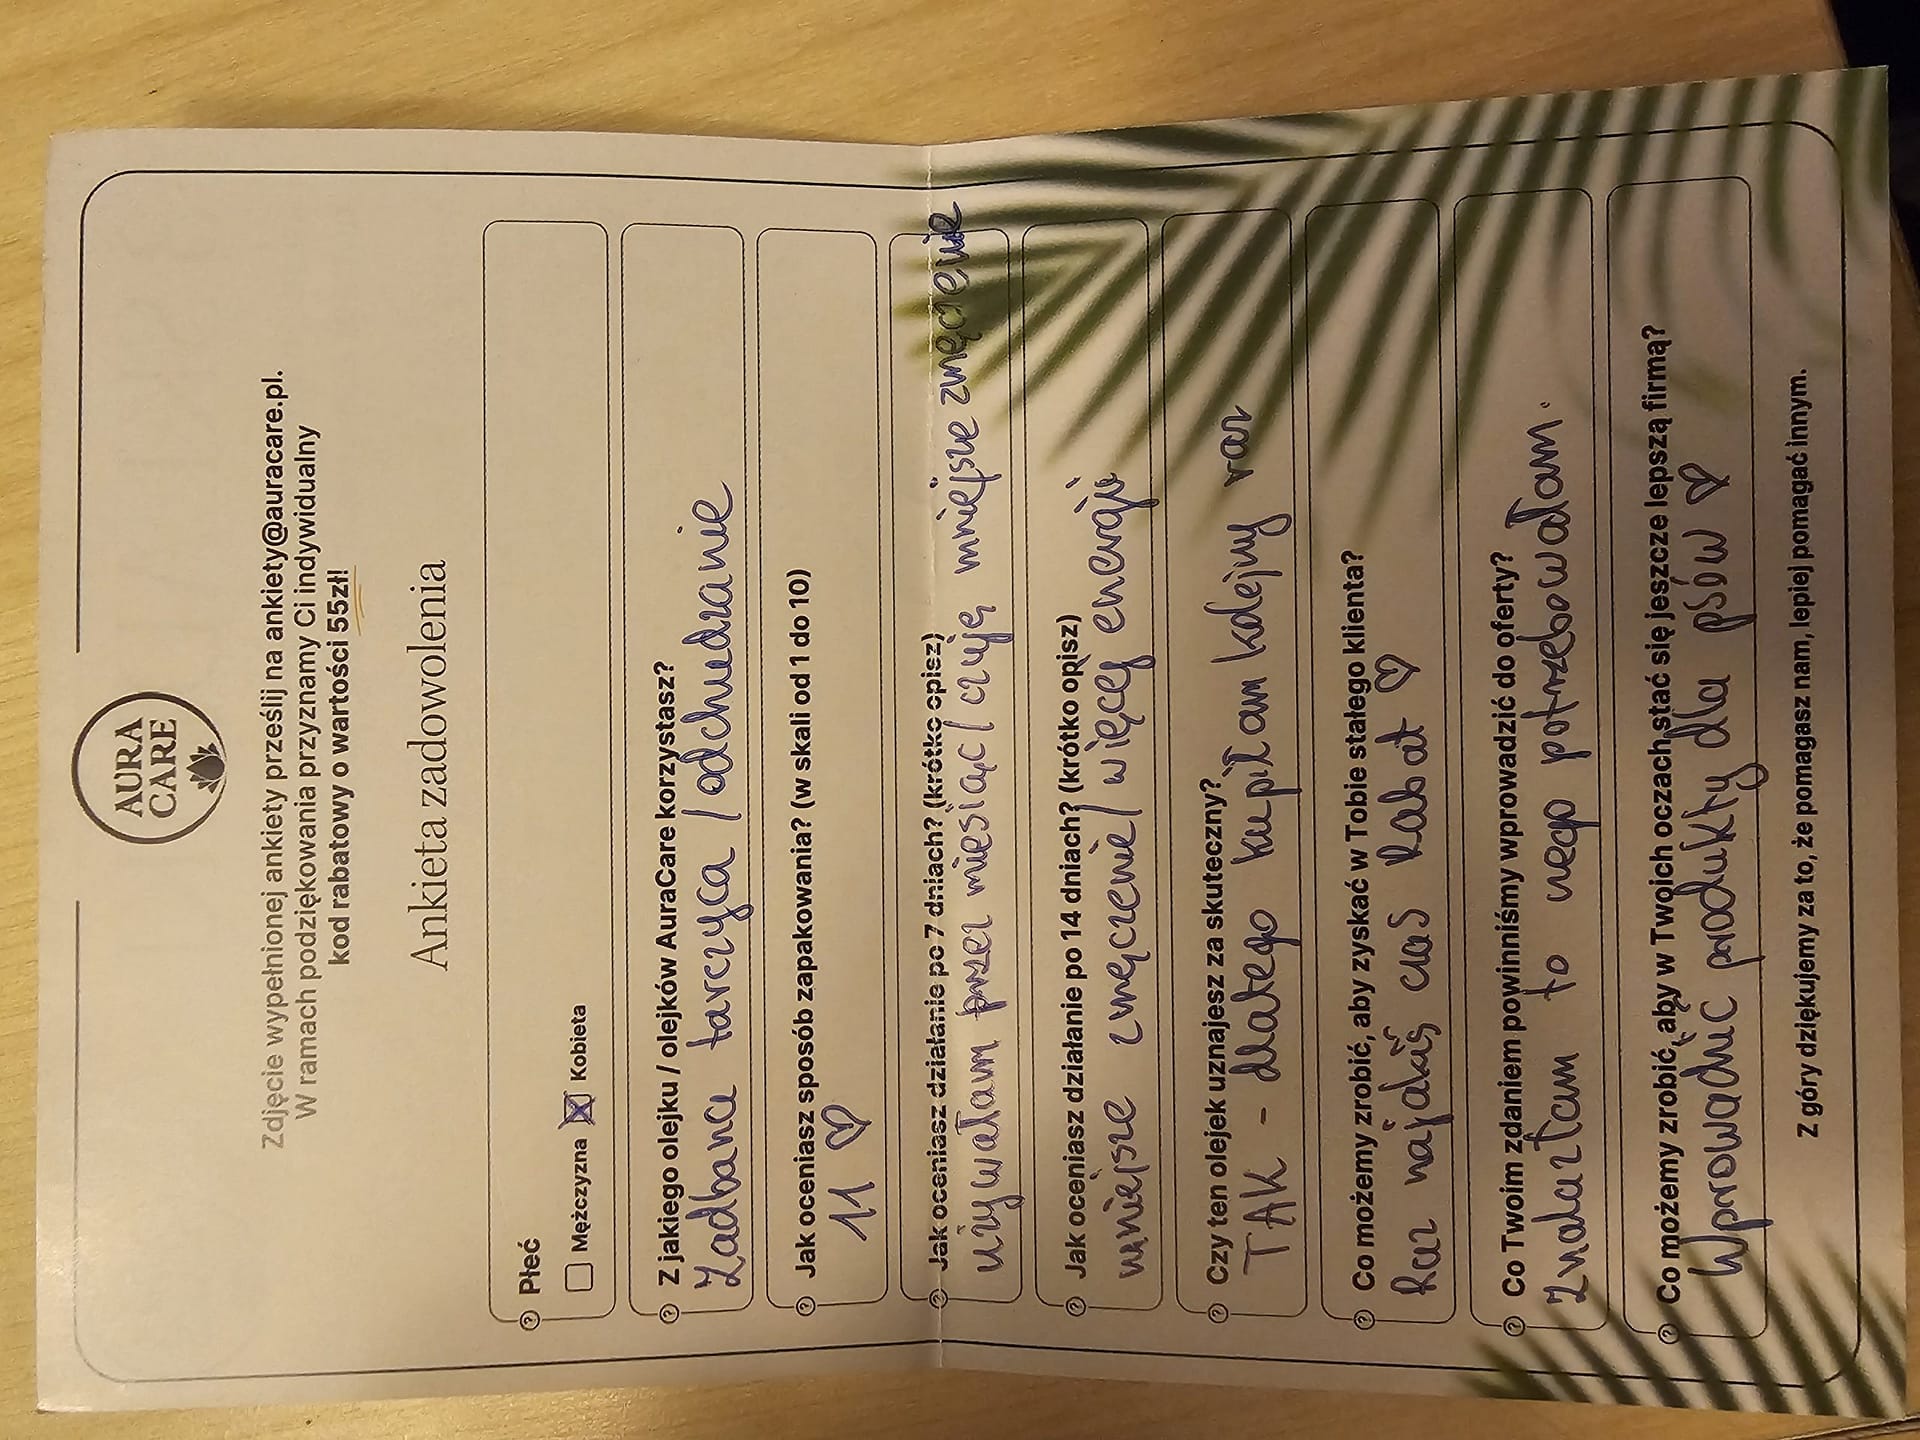 AURA
CARE
Zdjęcie wypełnionej ankiety prześlij na ankiety@auracare.pl.
W ramach podziękowania przyznamy Ci indywidualny
kod rabatowy o wartości 55zł!
Ankieta zadowolenia
Płeć
Mężczyzna Kobieta
Z jakiego olejku / olejków AuraCare korzystasz?
Zadbana tarczyca / odchudzanie
Jak oceniasz sposób zapakowania? (w skali od 1 do 10)
11 ♡
Jak oceniasz działanie po 7 dniach? (krótko opisz)
używałam przez miesiąc / czuję mniejsze zmęczenie
Jak oceniasz działanie po 14 dniach? (krótko opisz)
mniejsze zmęczenie / więcej energii
Czy ten olejek uznajesz za skuteczny?
TAK - dlatego kupiłam kolejny raz
Co możemy zrobić, aby zyskać w Tobie stałego klienta?
Raz na jakiś czas Rabat ♡
Co Twoim zdaniem powinniśmy wprowadzić do oferty?
Znalazłam to czego potrzebowałam.
Co możemy zrobić, aby w Twoich oczach stać się jeszcze lepszą firmą?
Wprowadzić produkty dla psów ♡
Z góry dziękujemy za to, że pomagasz nam, lepiej pomagać innym.